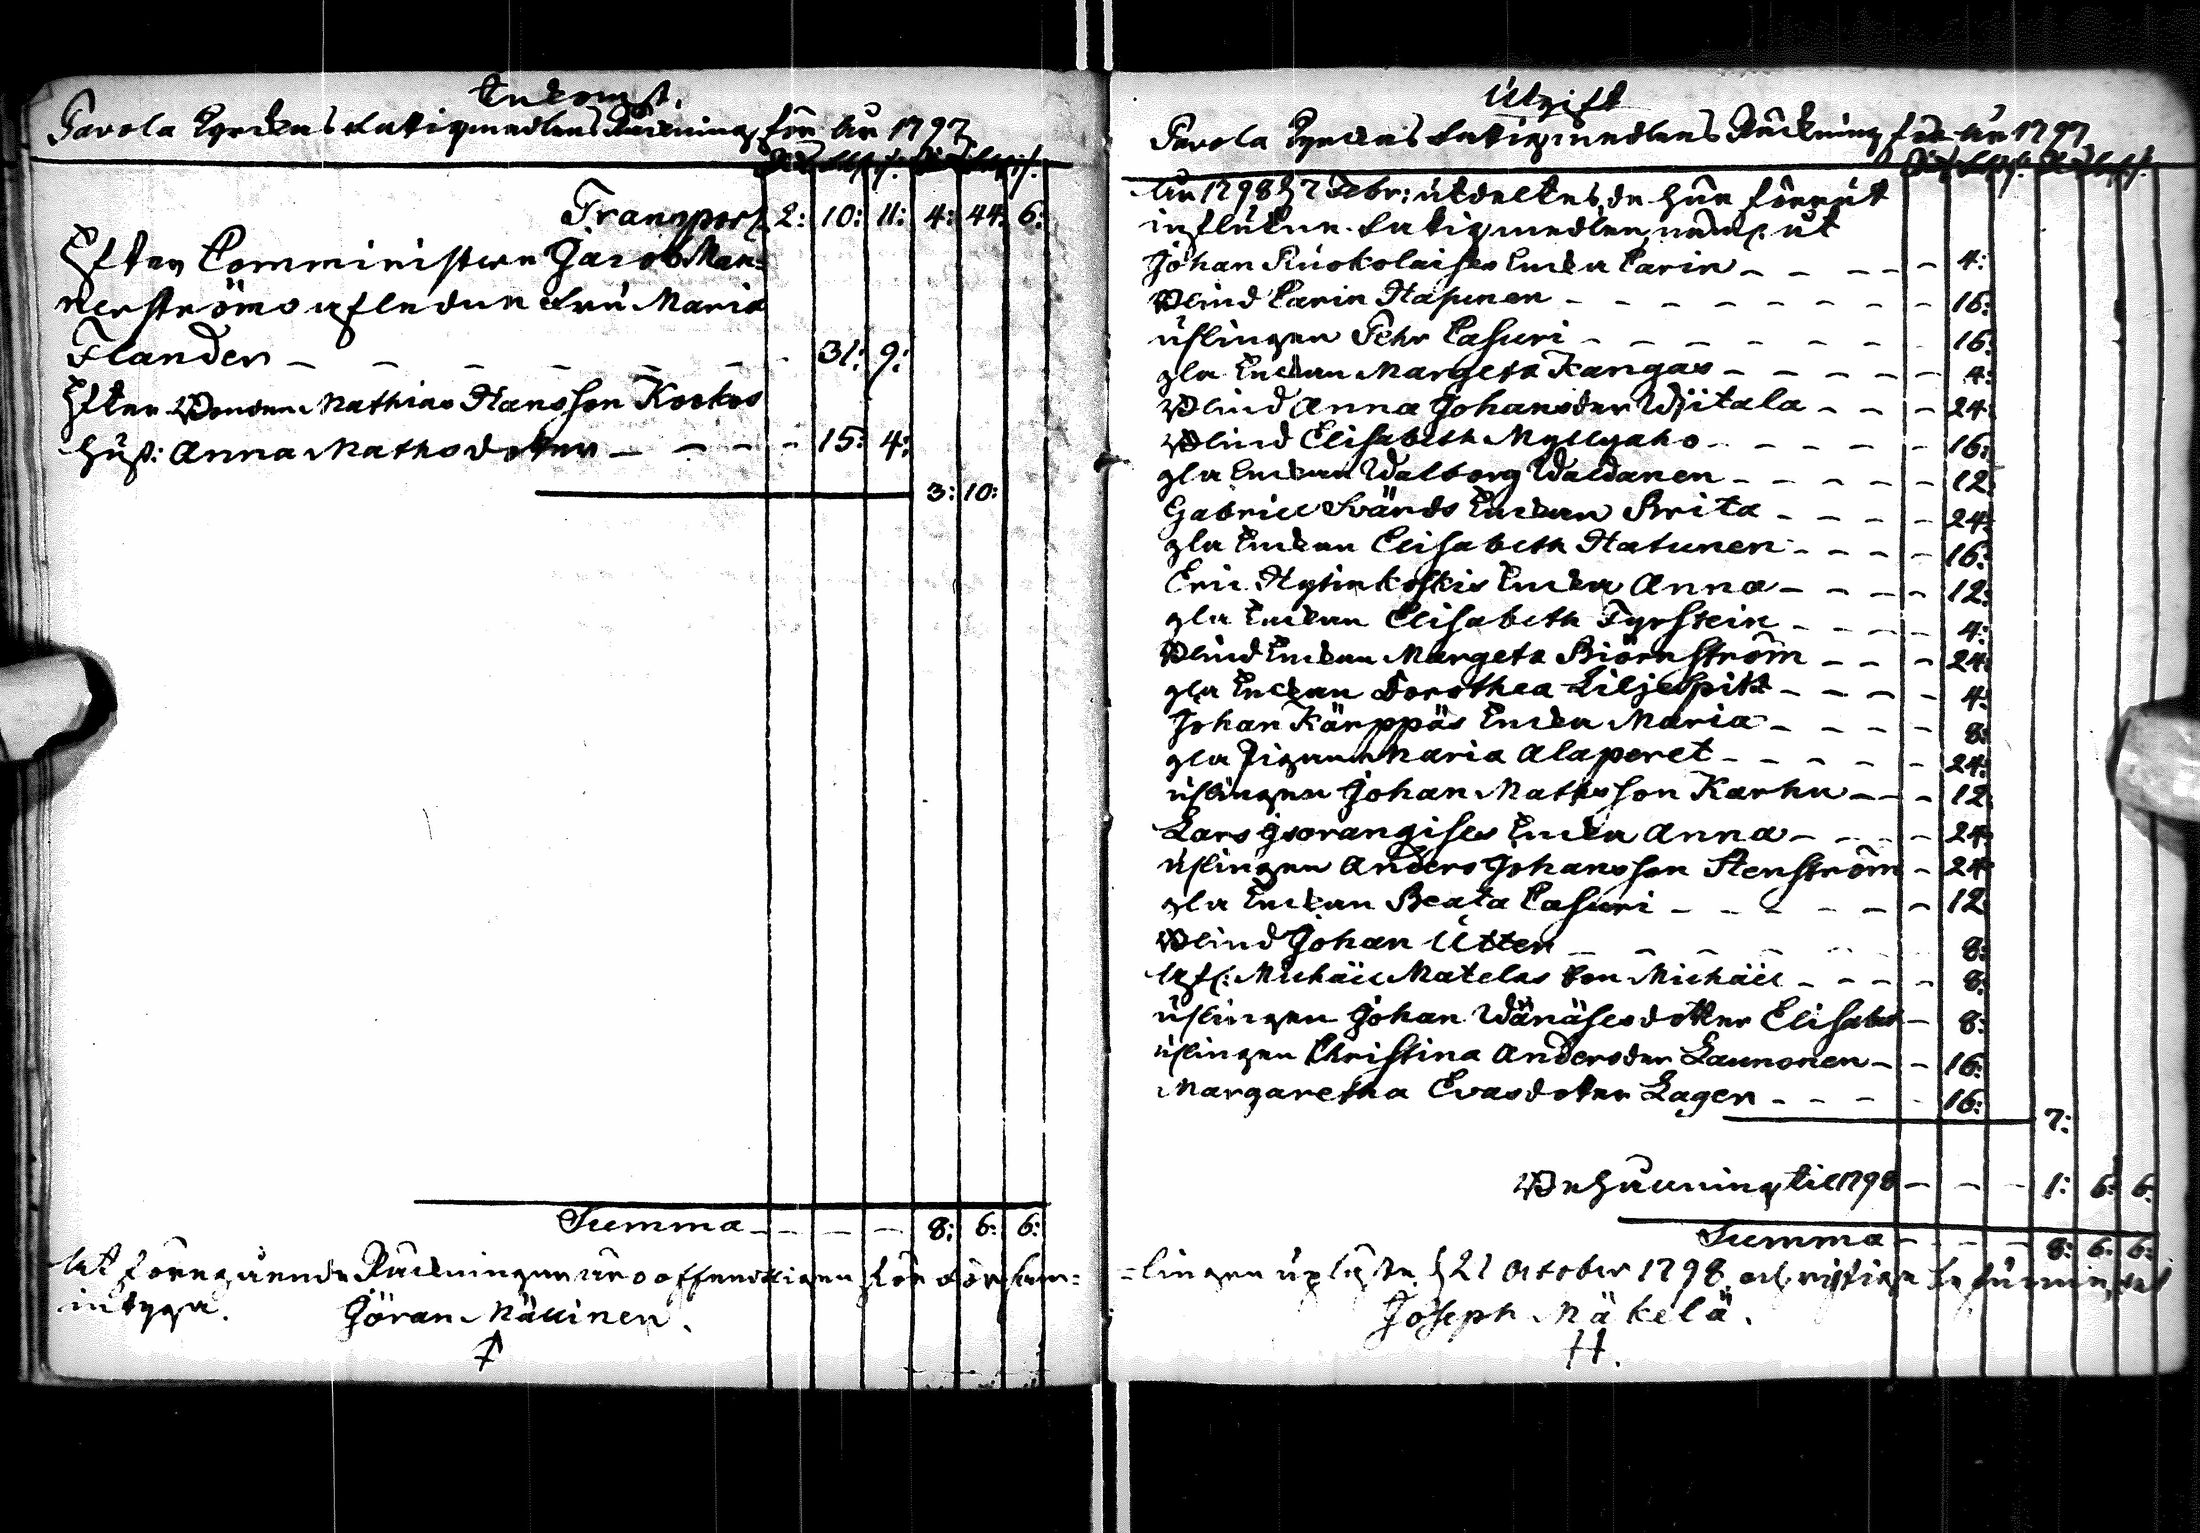 Inkomst.
Pavola Kyrckas Fattigmedlens Räckning för År 1797
Rdr sk: rs: Rdr sk: rs:
Transport 2: 10: 11: 4: 44: 6:
Efter Comministern Jacob Man=
nerströms afledne Fru Maria
Flander - - - - - 31: 9:
Efter Bonden Mathias Hansson Kockos
hust: Anna Mathsdotter - - - - 15: 4:
3: 10:
Summa - - - - 8: 6: 6:
At föregående Räckningar äro offenteligen för Församl=
intyga. Göran Näccinen.
Utgift
Pavola Kyrckas Fattigmedlens Räckning för År 1797
Rdr sk: rs: Rdr sk: rs:
År 1798 d 2 Febr: utdeltes de här förrut
influtne Fattigmedlen, näml: åt
Johan Ruokolaises Encka Carin - - - - 4:
Blind Carin Hapunen - - - - - - - - 16:
Uslingen Pehr Casuri - - - - - - - 16:
gla Enckan Margeta Kangas - - - - - 4:
Blind Anna Johansder Wiitala - - - 24:
Blind Elisabeth Myllyaho - - - - - 16:
gla Enckan Walborg Waldanen - - - - - 12:
Gabriel Svärds Enckan Brita - - - - 24:
gla Enckan Elisabeth Hatunen - - - - 16:
Eric Hytinkoskis Encka Anna - - - - 12:
gla Enckan Elisabeth Fyrstein - - - - 4:
Blind Enckan Margeta Biörnström - - - 24:
gla Enckan Dorothea Liljespitz - - - - 4:
Johan Kärppäs Encka Maria - - - - 8:
gla Pigan Maria Alaperet - - - - - 24:
Uslingen Johan Mathsson Karhu - - - 12
Lars Isorangises Encka Anna - - - - 24:
Uslingen Anders Johansson Stenström - 24
gla Enckan Beata Casuri - - - - - - 12
Blind Johan Utter - - - - - - 8:
Michäel Matelas Son Michäel - - - - 8:
Uslingen Johan Wänäses dotter Elisabet - 8:
Uslingen Christina Andersder Launonen - - 16:
Margaretha Evasdotter Lager - - - - 16:
7:
Behållning til 1798 - - - - 1: 6: 6:
Summa - - - - 8: 6: 6:
=lingen upläste d 21 October 1798 och riktige befundne,
Joseph Mäkelä.